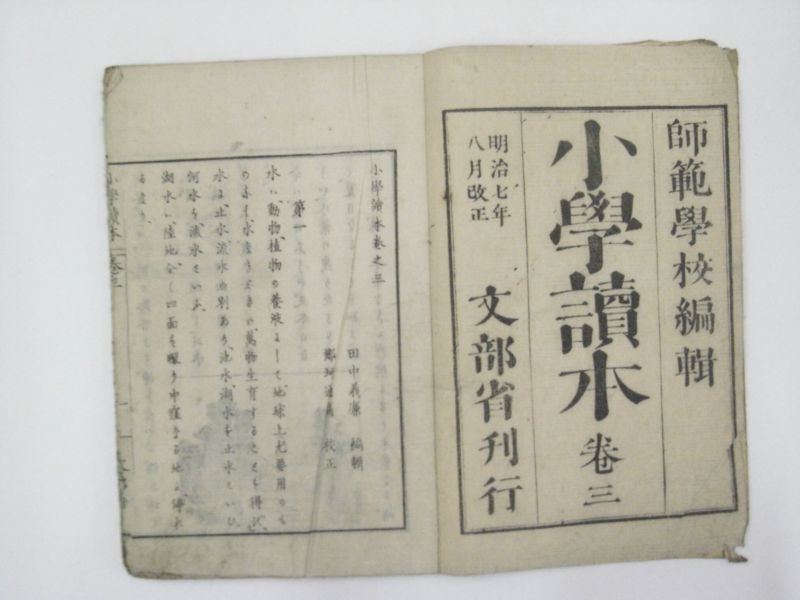 師範學校編輯
小學讀本 卷三
明治七年
八月改正
文部省刊行
小學讀本卷之三
田中義廉 編輯
校正
第一
水ハ動物植物の養液にして地球上尤要用のも
のなり水なきときハ萬物生育することを得ず
水に止水流水の別あり池水湖水を止水といひ
河水を流水といふ
湖水ハ陸地全く四面を環り中窪なる地
小學讀本 卷三